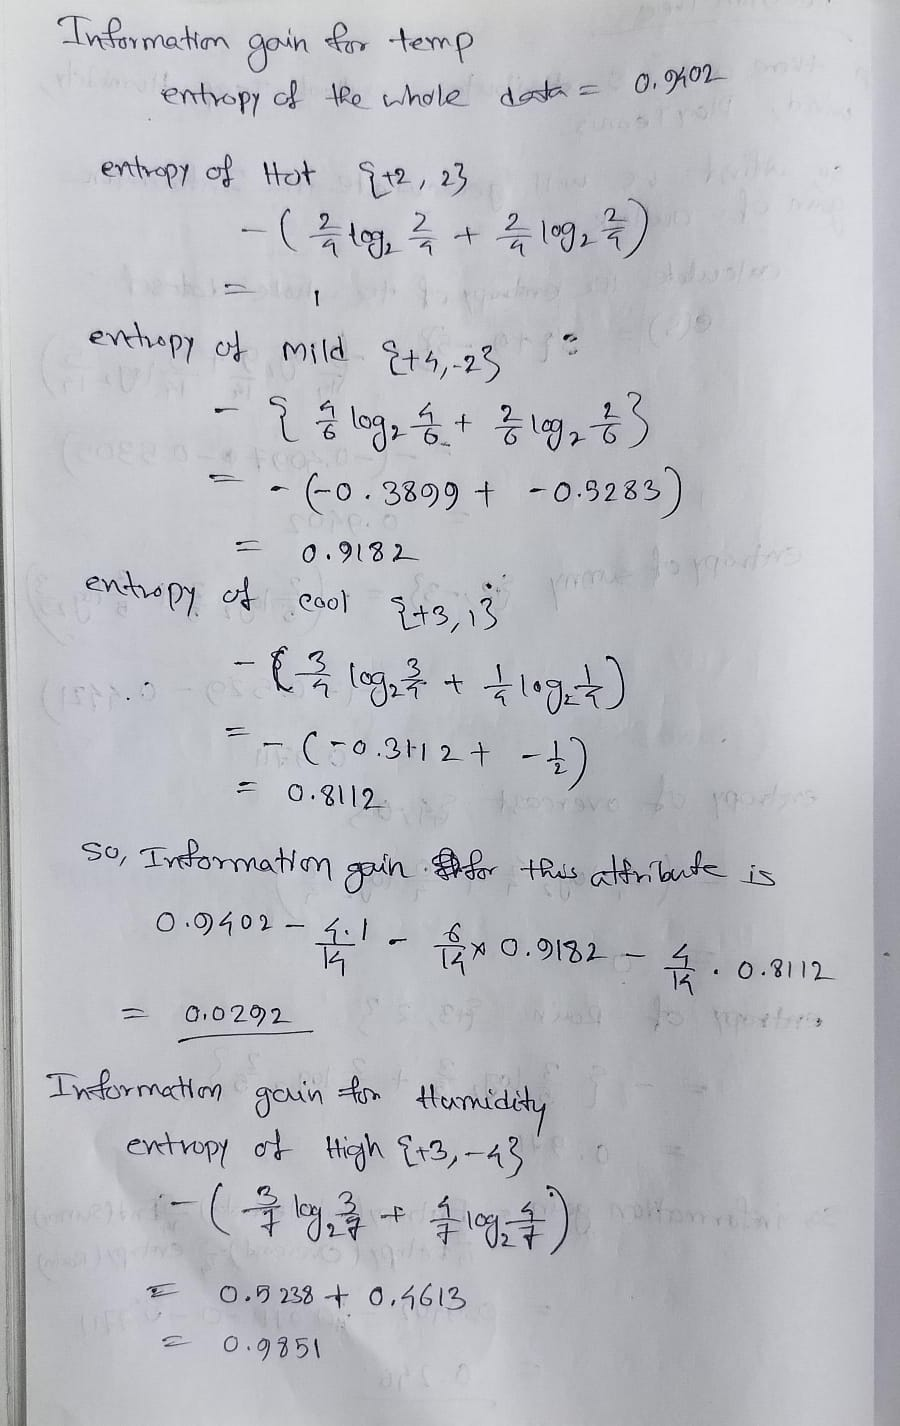 Information gain for temp
entropy of the whole data = 0.9402
entropy of Hot {+2, 2}
-( 2/4 log₂ 2/4 + 2/4 log₂ 2/4 )
= 1
entropy of mild {+4,-2} :
- { 4/6 log₂ 4/6 + 2/6 log₂ 2/6 }
= -(-0.3899 + -0.5283)
= 0.9182
entropy of cool {+3, 1}
-( 3/4 log₂ 3/4 + 1/4 log₂ 1/4 )
= -(-0.3112 + -1/2)
= 0.8112
so, Information gain for this attribute is
0.9402 - 4.1/14 - 6/14 × 0.9182 - 4/14 . 0.8112
= 0.0292
Information gain for Humidity
entropy of High {+3,-4}
-( 3/7 log₂ 3/7 + 4/7 log₂ 4/7 )
= 0.5238 + 0.4613
= 0.9851